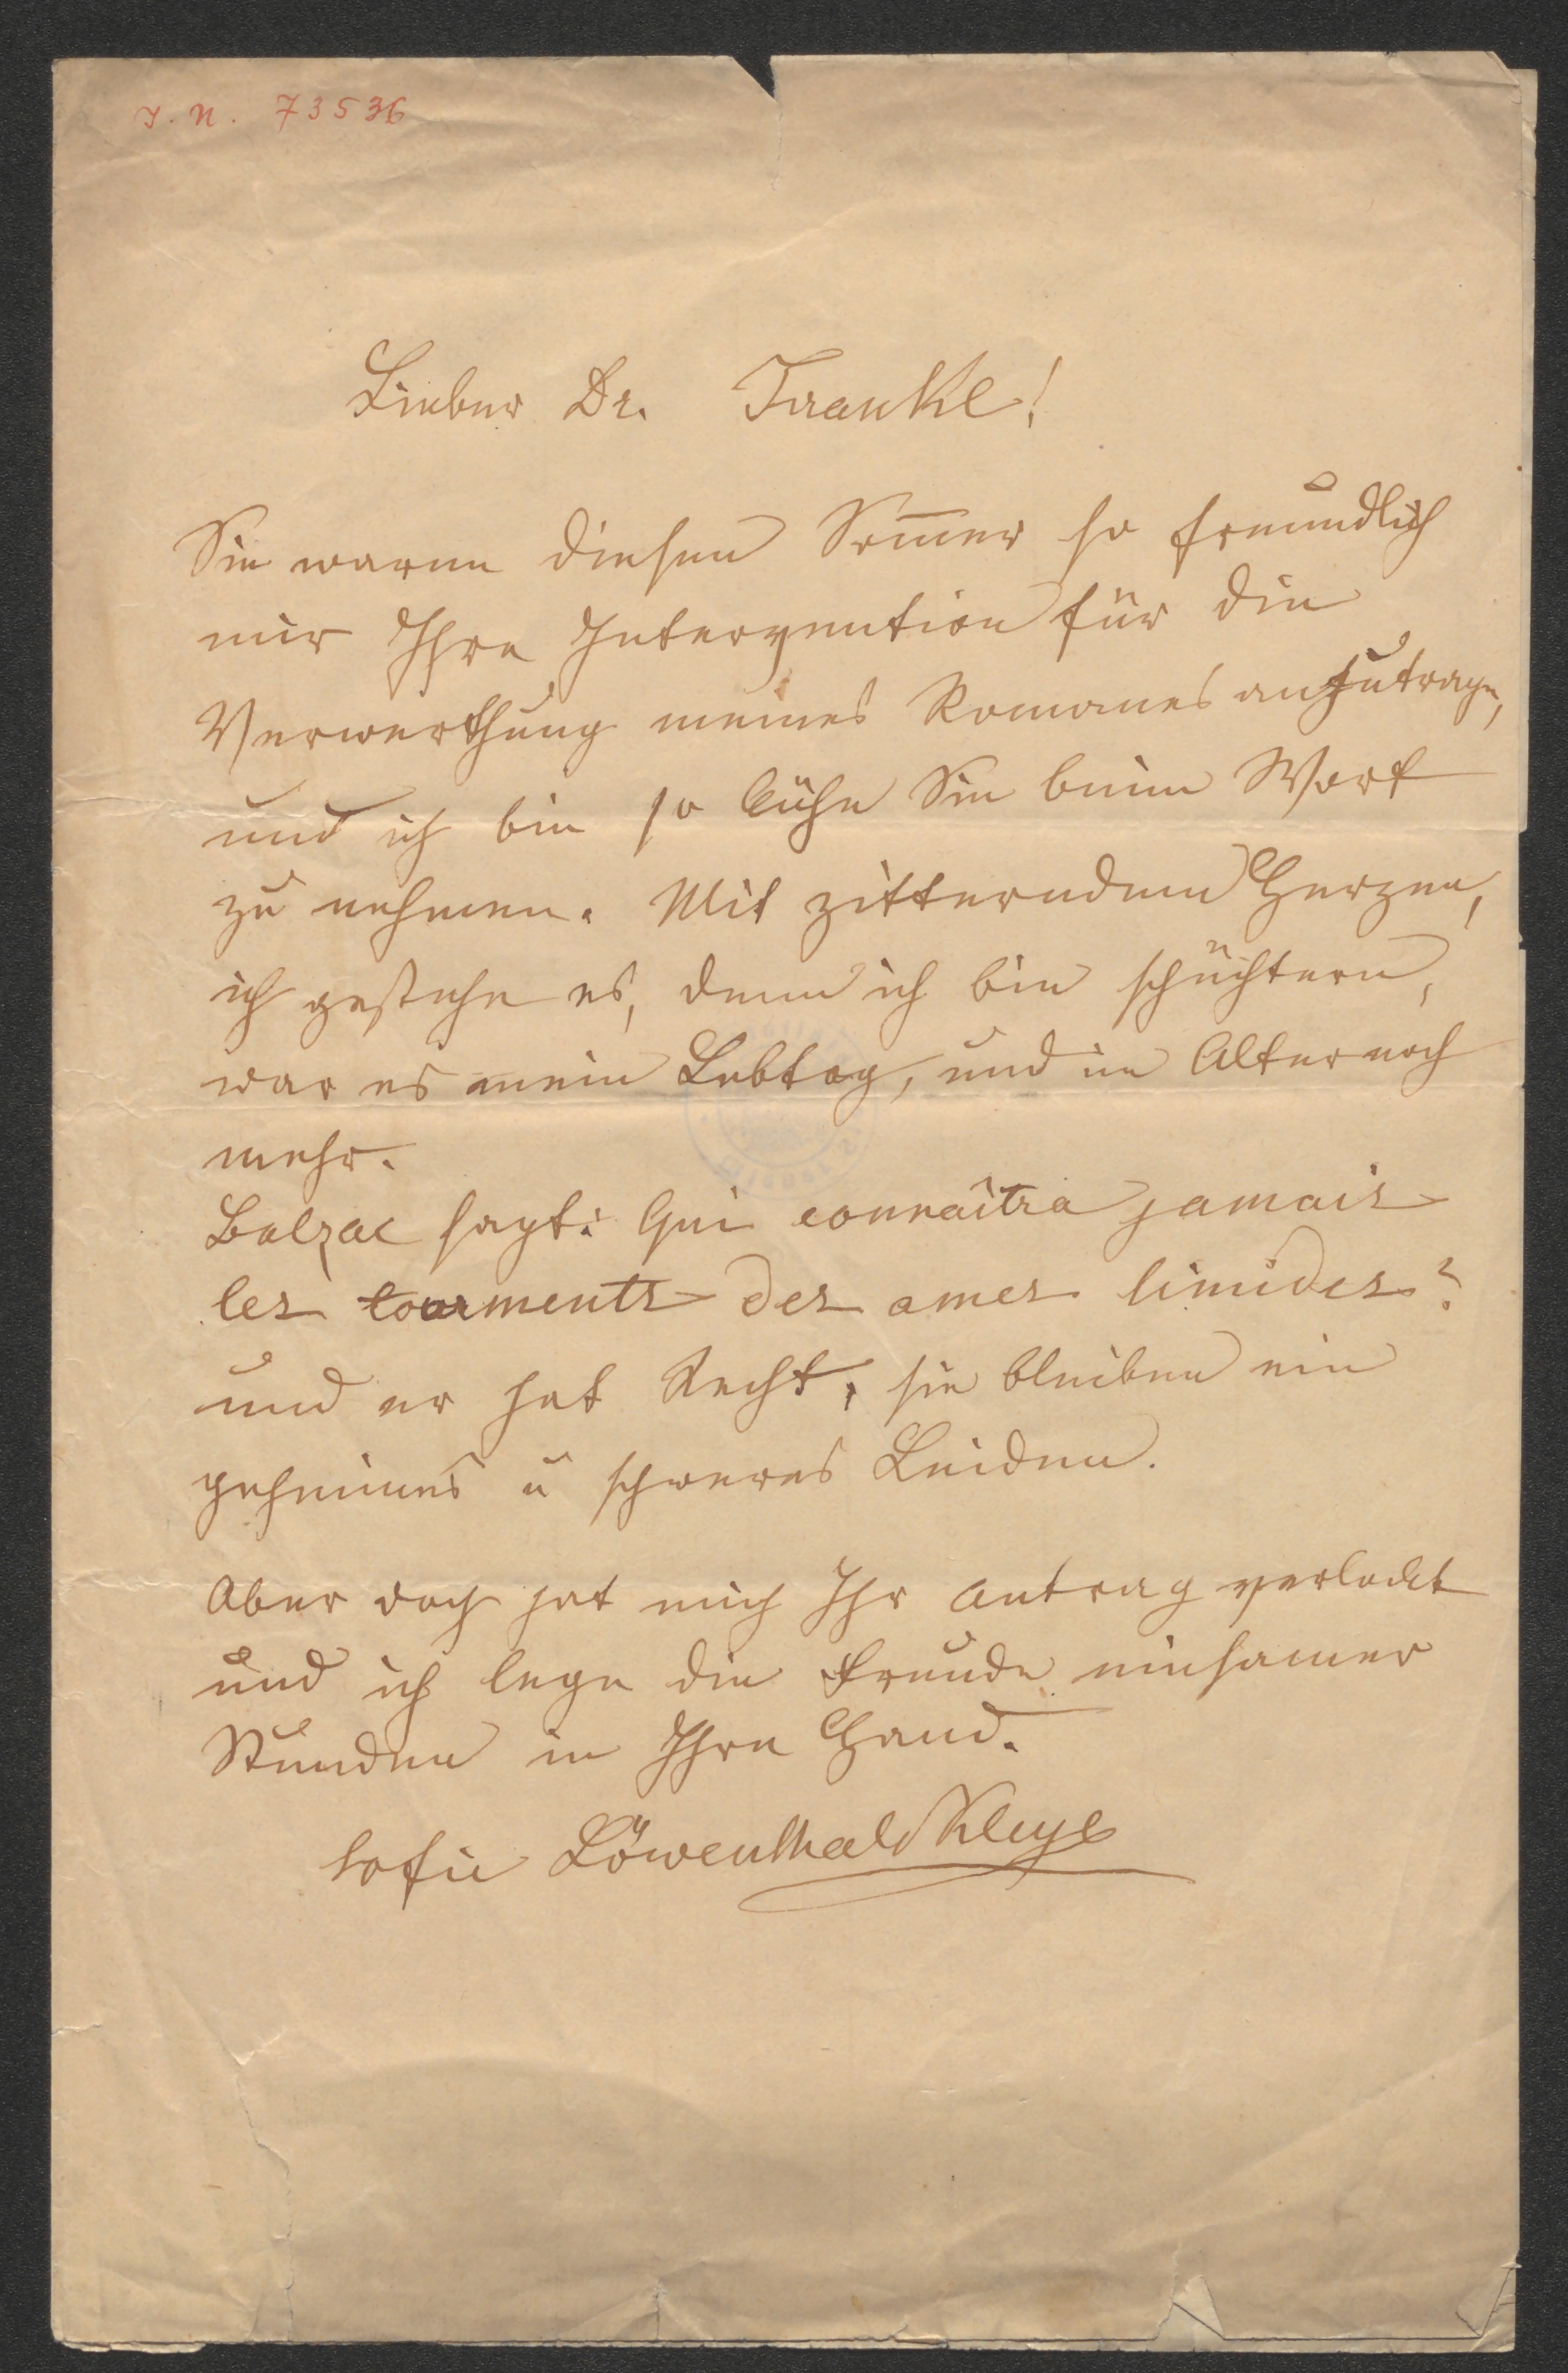 J. N. 73536
Lieber Dr. Frankl!
Sie waren diesen Som̅er so freundlich
mir Ihre Intervention für die
Verwerthung meines Romanes anzutragen,
und ich bin so kühn Sie beim Wort
zu nehmen. Mit zitterndem Herzen,
ich gestehe es, denn ich bin schüchtern,
war es mein Lebtag, und im Alter noch
mehr.
Balzac sagt: Qui connaîtra jamais
les tourments des ames timides?
und er hat Recht, sie bleiben ein
geheimes u schweres Leiden.
Aber doch hat mich Ihr Antrag verlockt
und ich lege die Freude einsamer
Stunden in Ihre Hand.
Sofie Löwenthal Kleyle